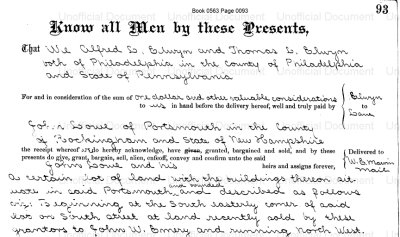 Unofficial Document
Book 0563 Page 0093
93
Know all Men by these Presents,
That We Alfred L. Elwyn and Thomas L. Elwyn
both of Philadelphia in the county of Philadelphia
and State of Pennsylvania
For and in consideration of the sum of one dollar and other valuable considerations
to us in hand before the delivery hereof, well and truly paid by
Elwyn
to
John Lowe of Portsmouth in the County
of Rockingham and State of New Hampshire
the receipt whereof we do hereby acknowledge, have given, granted, bargained and sold, and by these
presents do give, grant, bargain, sell, alien, enfeoff, convey and confirm unto the said
John Lowe and his heirs and assigns forever,
Delivered to
mail
A certain lot of land with the buildings thereon sit
uate in said Portsmouth and bounded and described as follows
viz: Beginning at the South easterly corner of said
lot on South street at land recently sold by these
grantors to John W. Emery and running North West.